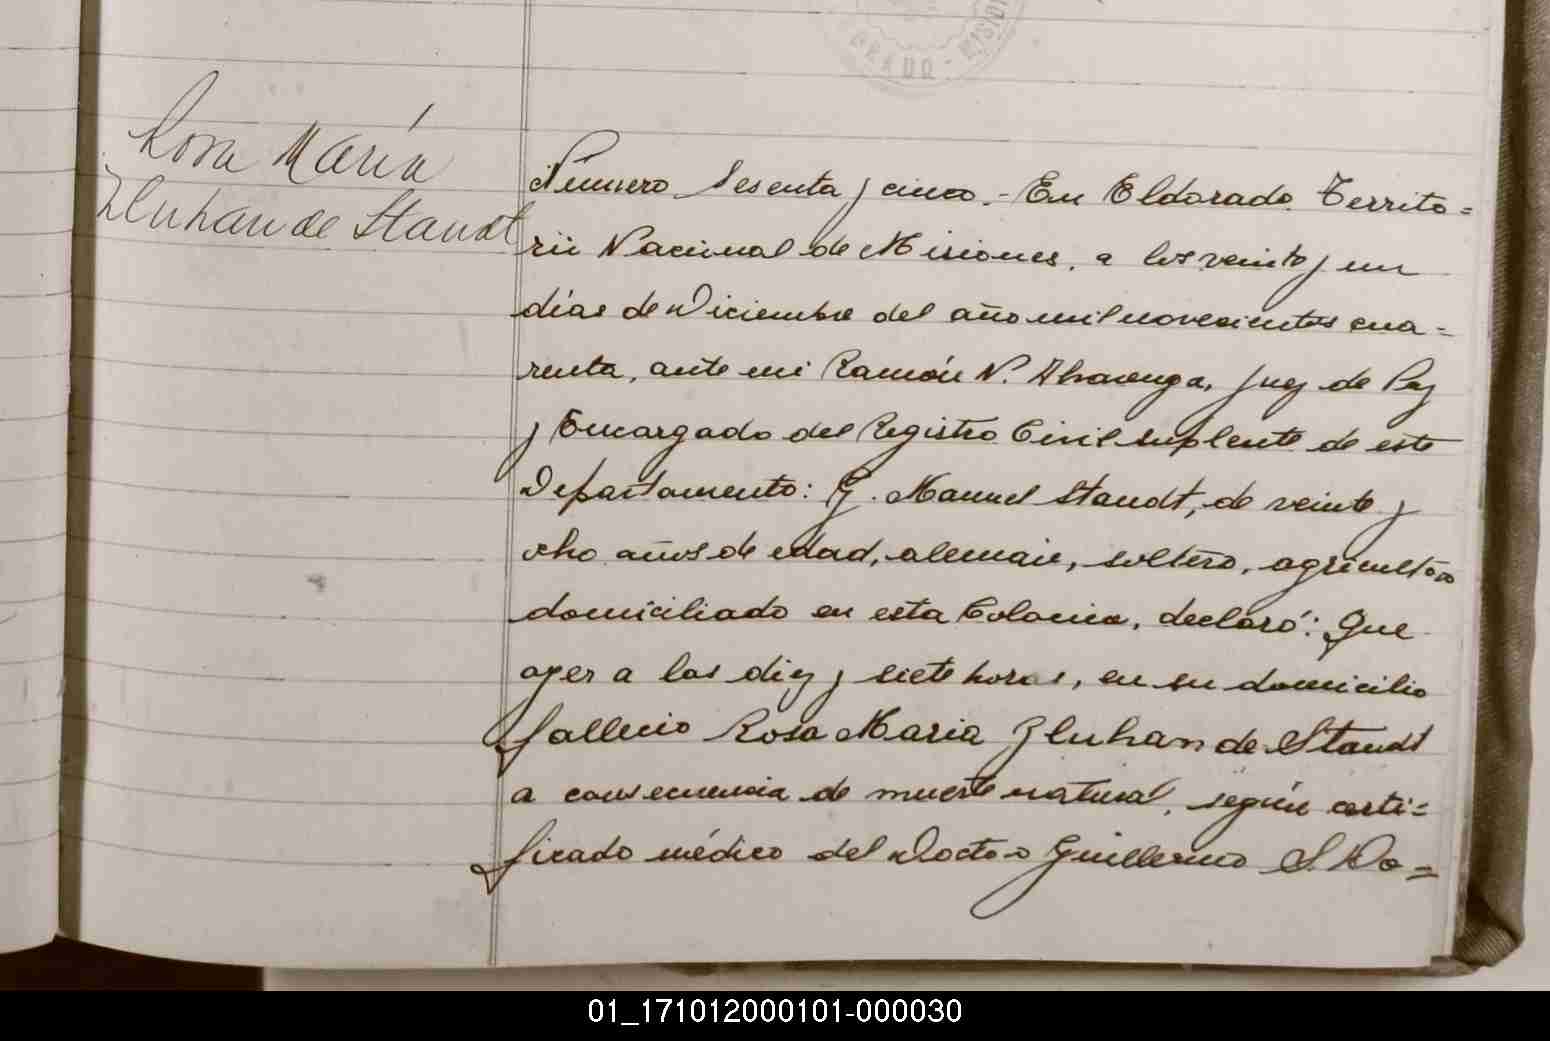 RADO - MISION
Rosa María
Zluhan de Staudt
Número Sesenta y cinco.- En Eldorado, Territo=
rio Nacional de Misiones, a los veinte y un
días de Diciembre del año mil novecientos cua=
renta, ante mi Ramón N. Alvarenga, Juez de Paz
y Encargado del Registro Civil suplente de este
Departamento: G. Manuel Staudt, de veinte y
ocho años de edad, alemán, soltero, agricultor
domiciliado en esta Colonia, declaró: Que
ayer a las diez y siete horas, en su domicilio
fallecio Rosa Maria Zluhan de Staudt
a consecuencia de muerte natural, según certi=
ficado médico del Doctor Guillermo S. Do=
01_171012000101-000030